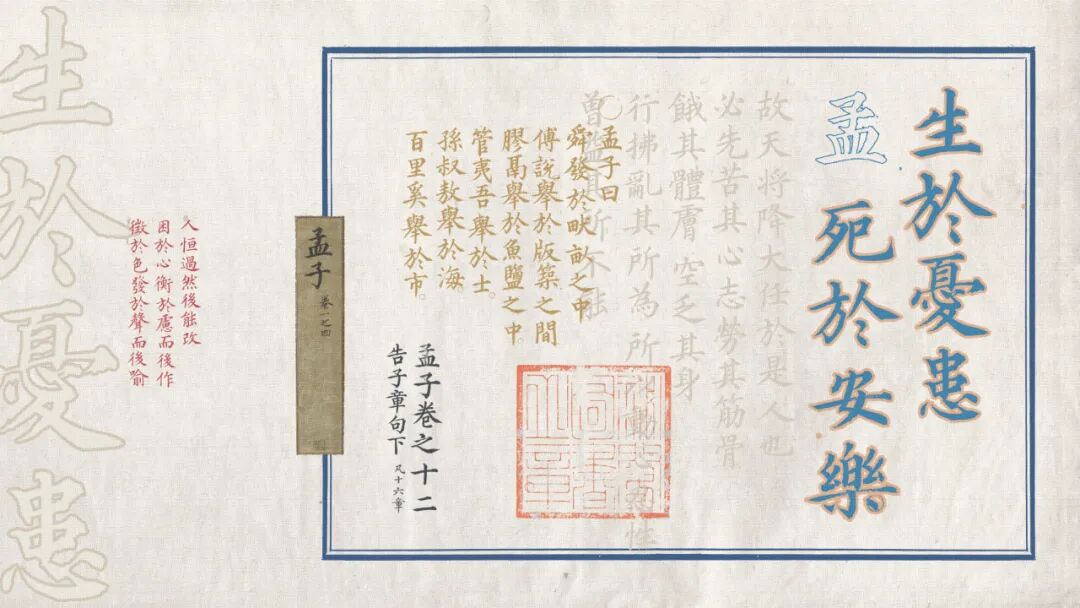 生於憂患
死於安樂
孟
故天将降大任於是人也
必先苦其心志勞其筋骨
餓其體膚空乏其身
行拂亂其所為所以動心忍性
曾益其所不能
孟子曰
舜發於畎畝之中
傅說舉於版築之間
膠鬲舉於魚鹽之中。
管夷吾舉於士。
孫叔敖舉於海
百里奚舉於市。
孟子卷之十二
告子章句下 凡十六章
孟子 卷一之四
人恒過然後能改
困於心衡於慮而後作
徵於色發於聲而後喻
生於憂患